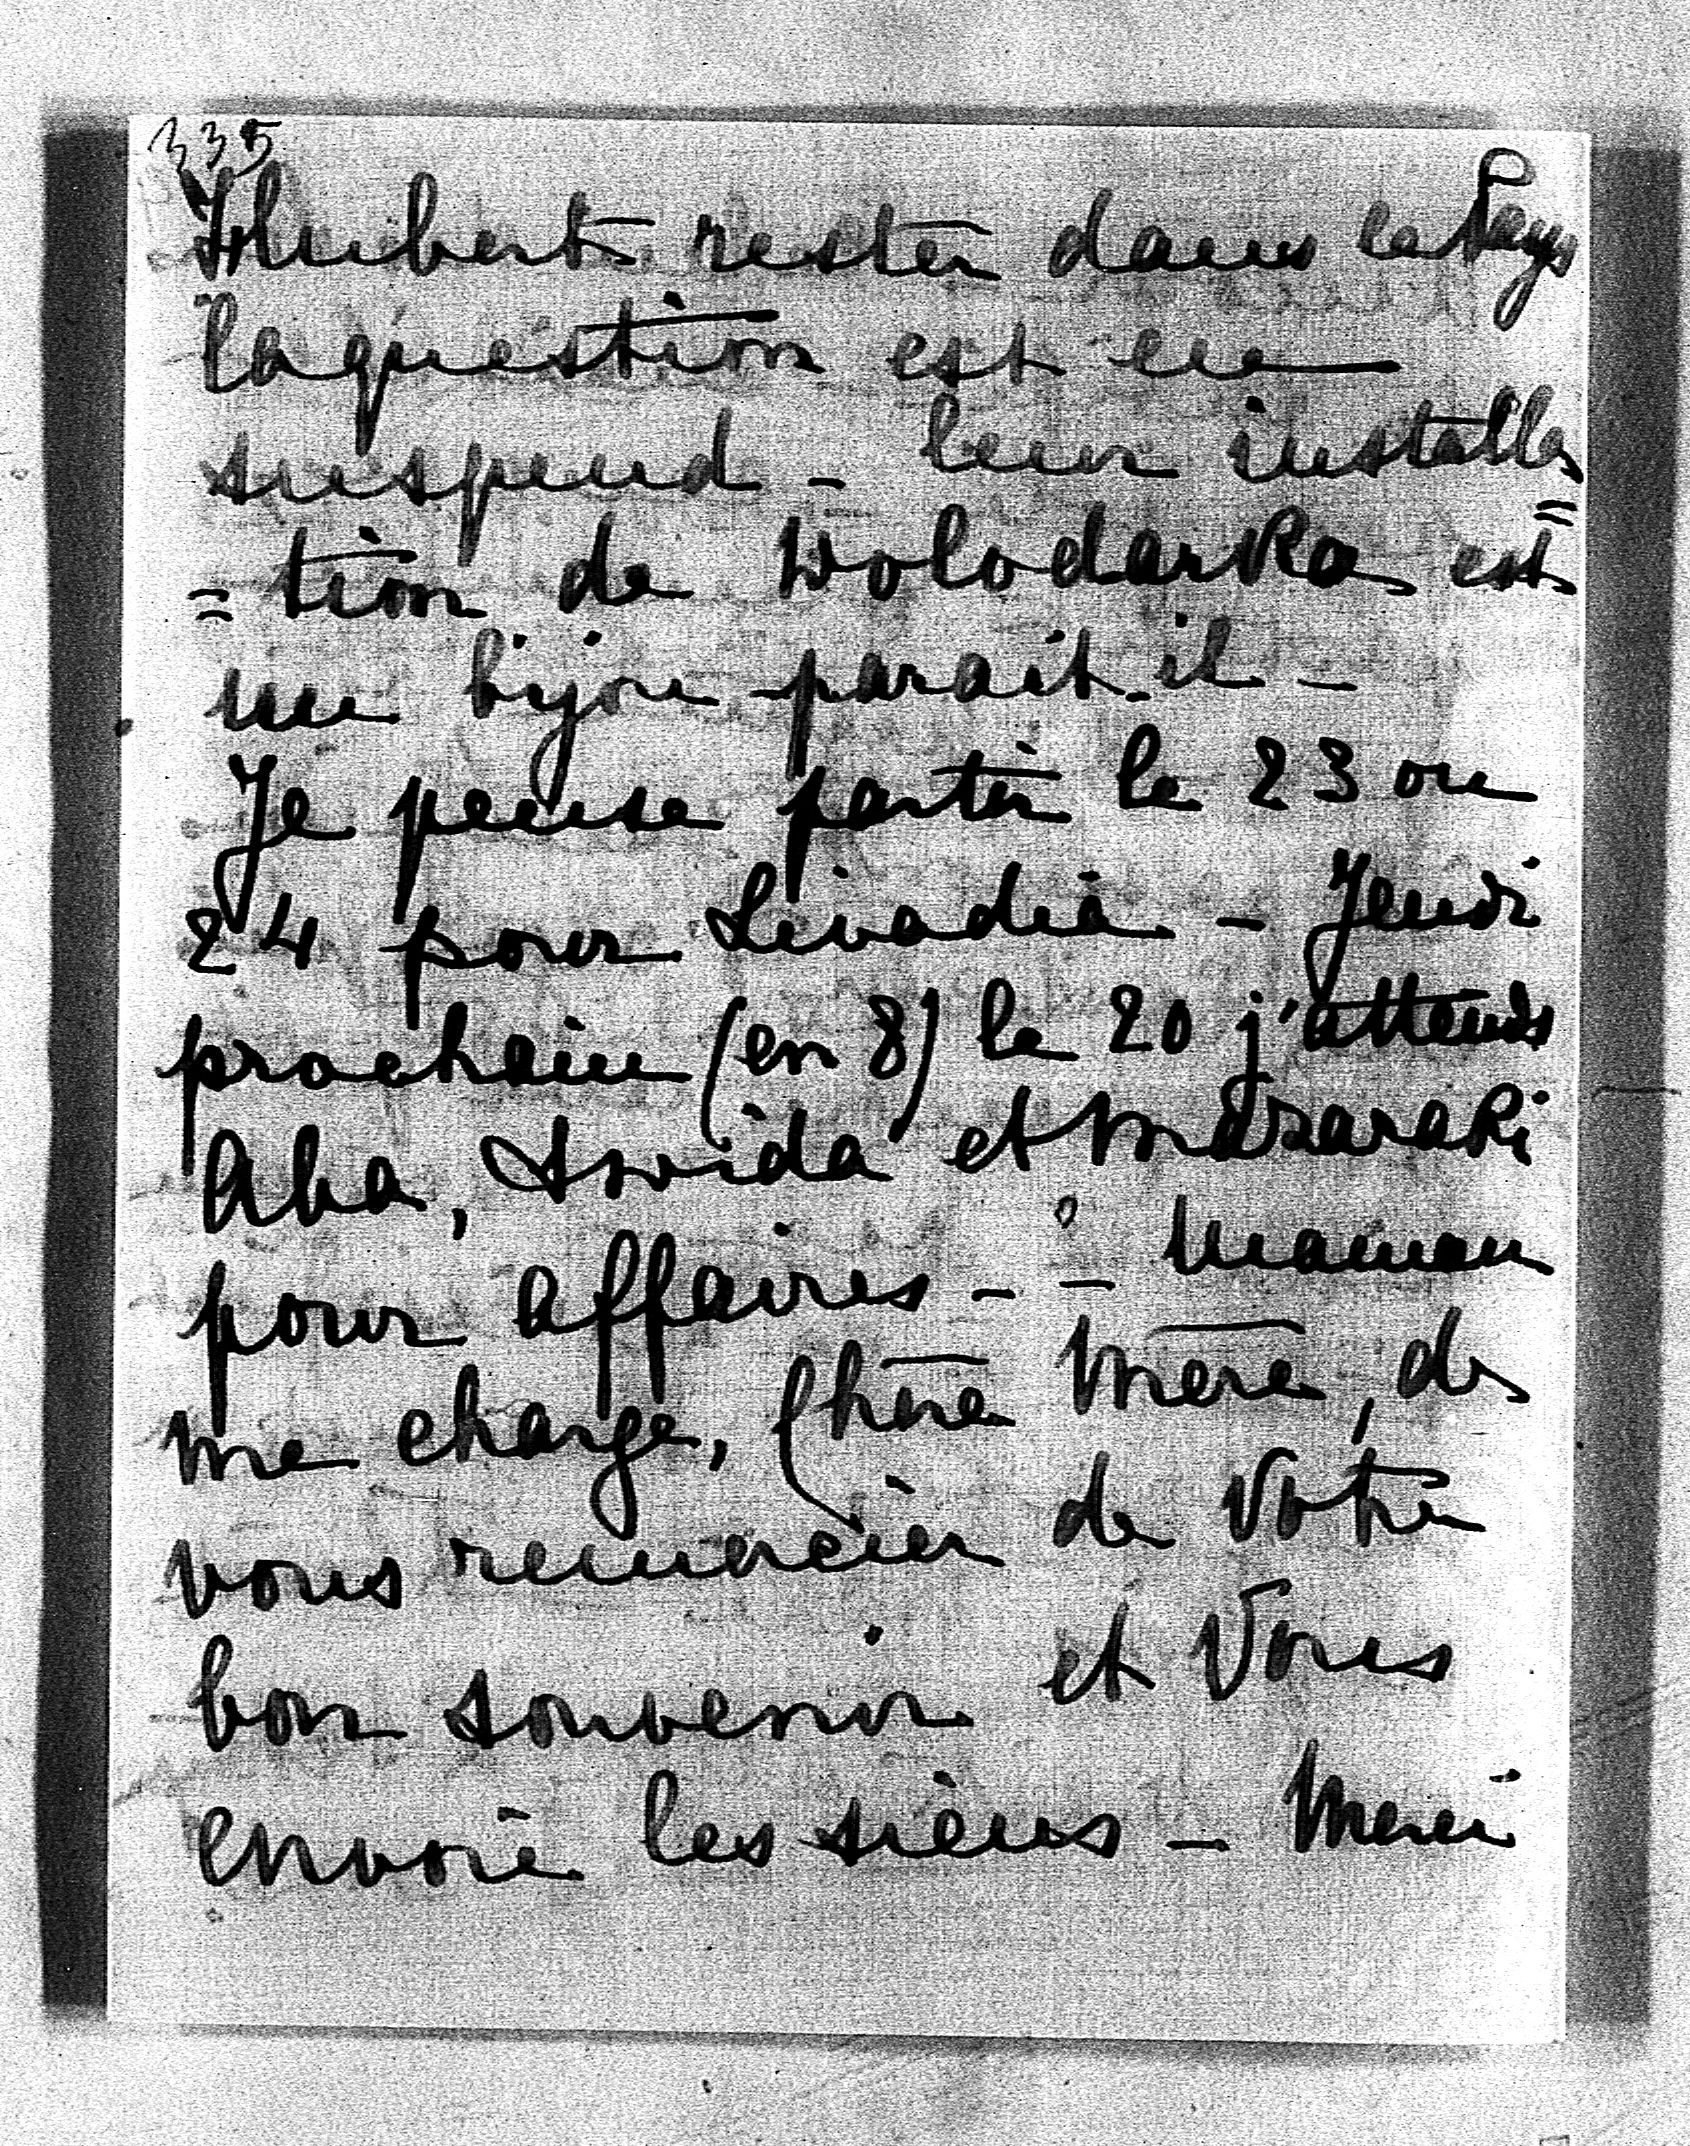 335
Hubert rester dans le Pays
la question est en
suspend - leur installa
= tion de Wolodarka est
un bijou parait-il -
Je pense partir le 23 ou
24 pour Livadia - Jeudi
prochain (en 8) le 20 j'attends
Aba, Swida et Mazaraki
pour affaires - - Maman
me charge, Chère Mère, de
vous remercier de Votre
bon souvenir et Vous
envoie les siens - Merci